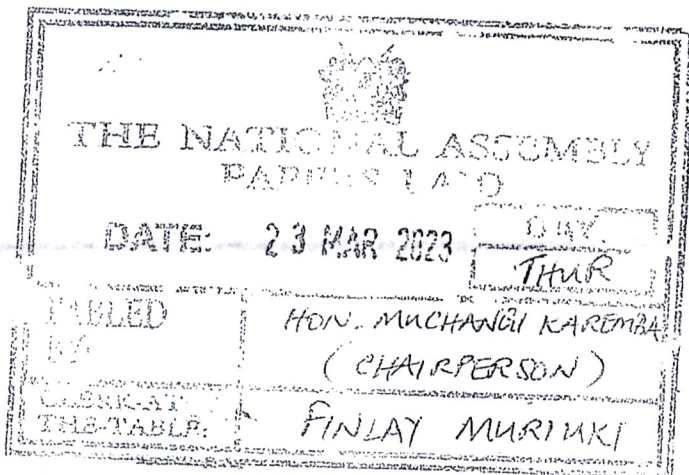 THE NATIONAL ASSEMBLY
PAPERS LAID
DATE: 23 MAR 2023 DAY
THUR
TABLED HON. MUCHANGI KAREMBA
BY (CHAIRPERSON)
CLERK-AT
THE-TABLE: FINLAY MURIUKI